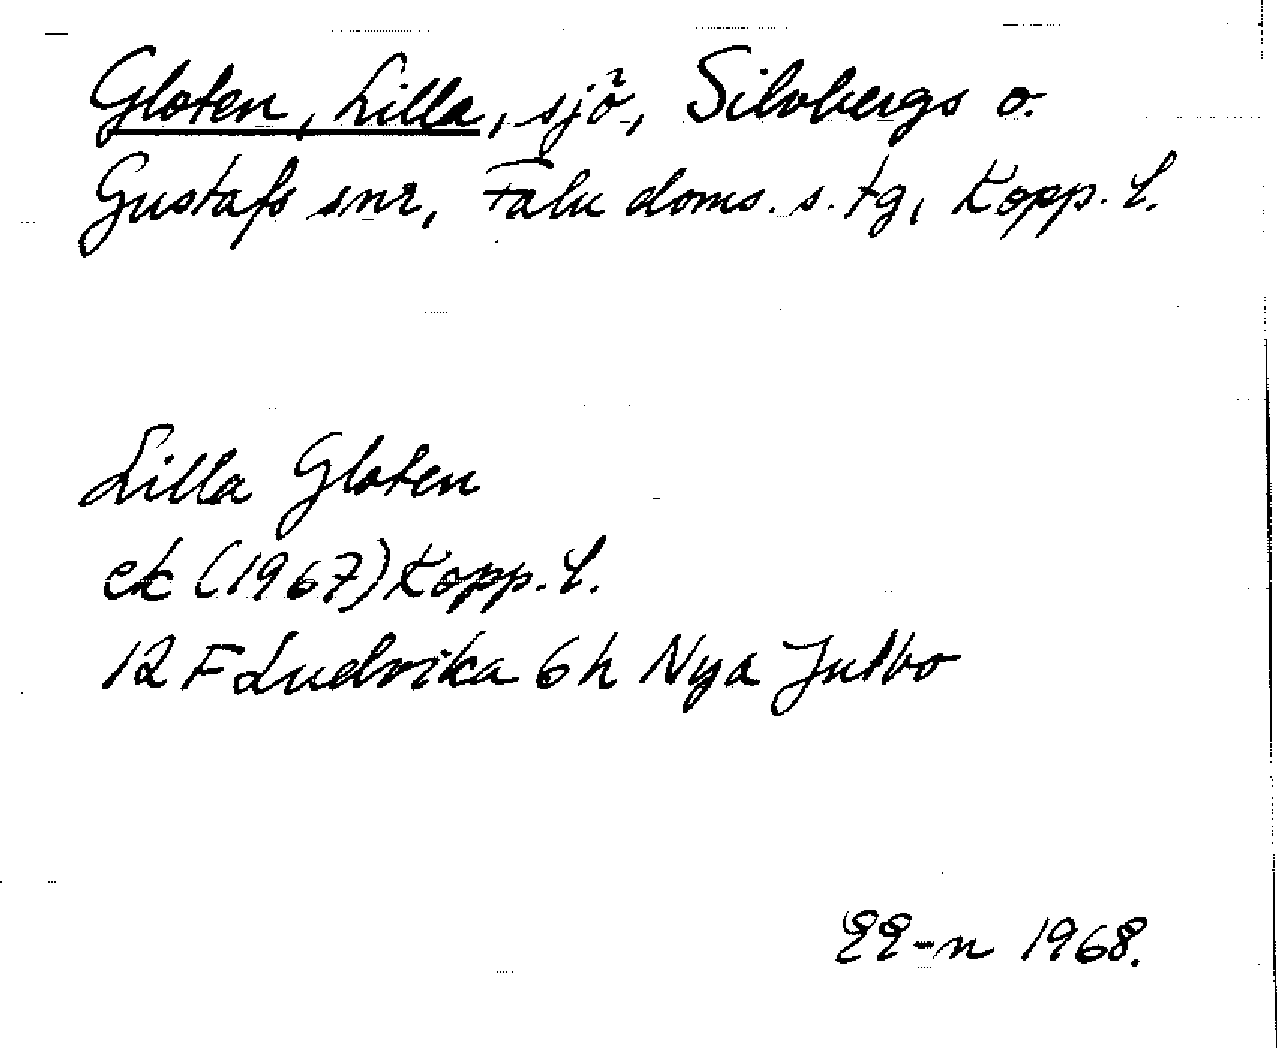 Gloten, Lilla, sjö, Silvbergs o.
Gustafs snr, Falu doms. s. tg, Kopp. l.
Lilla Gloten
ek (1967) Kopp. l.
12 F Ludvika 6h Nya Julbo
EE-n 1968.